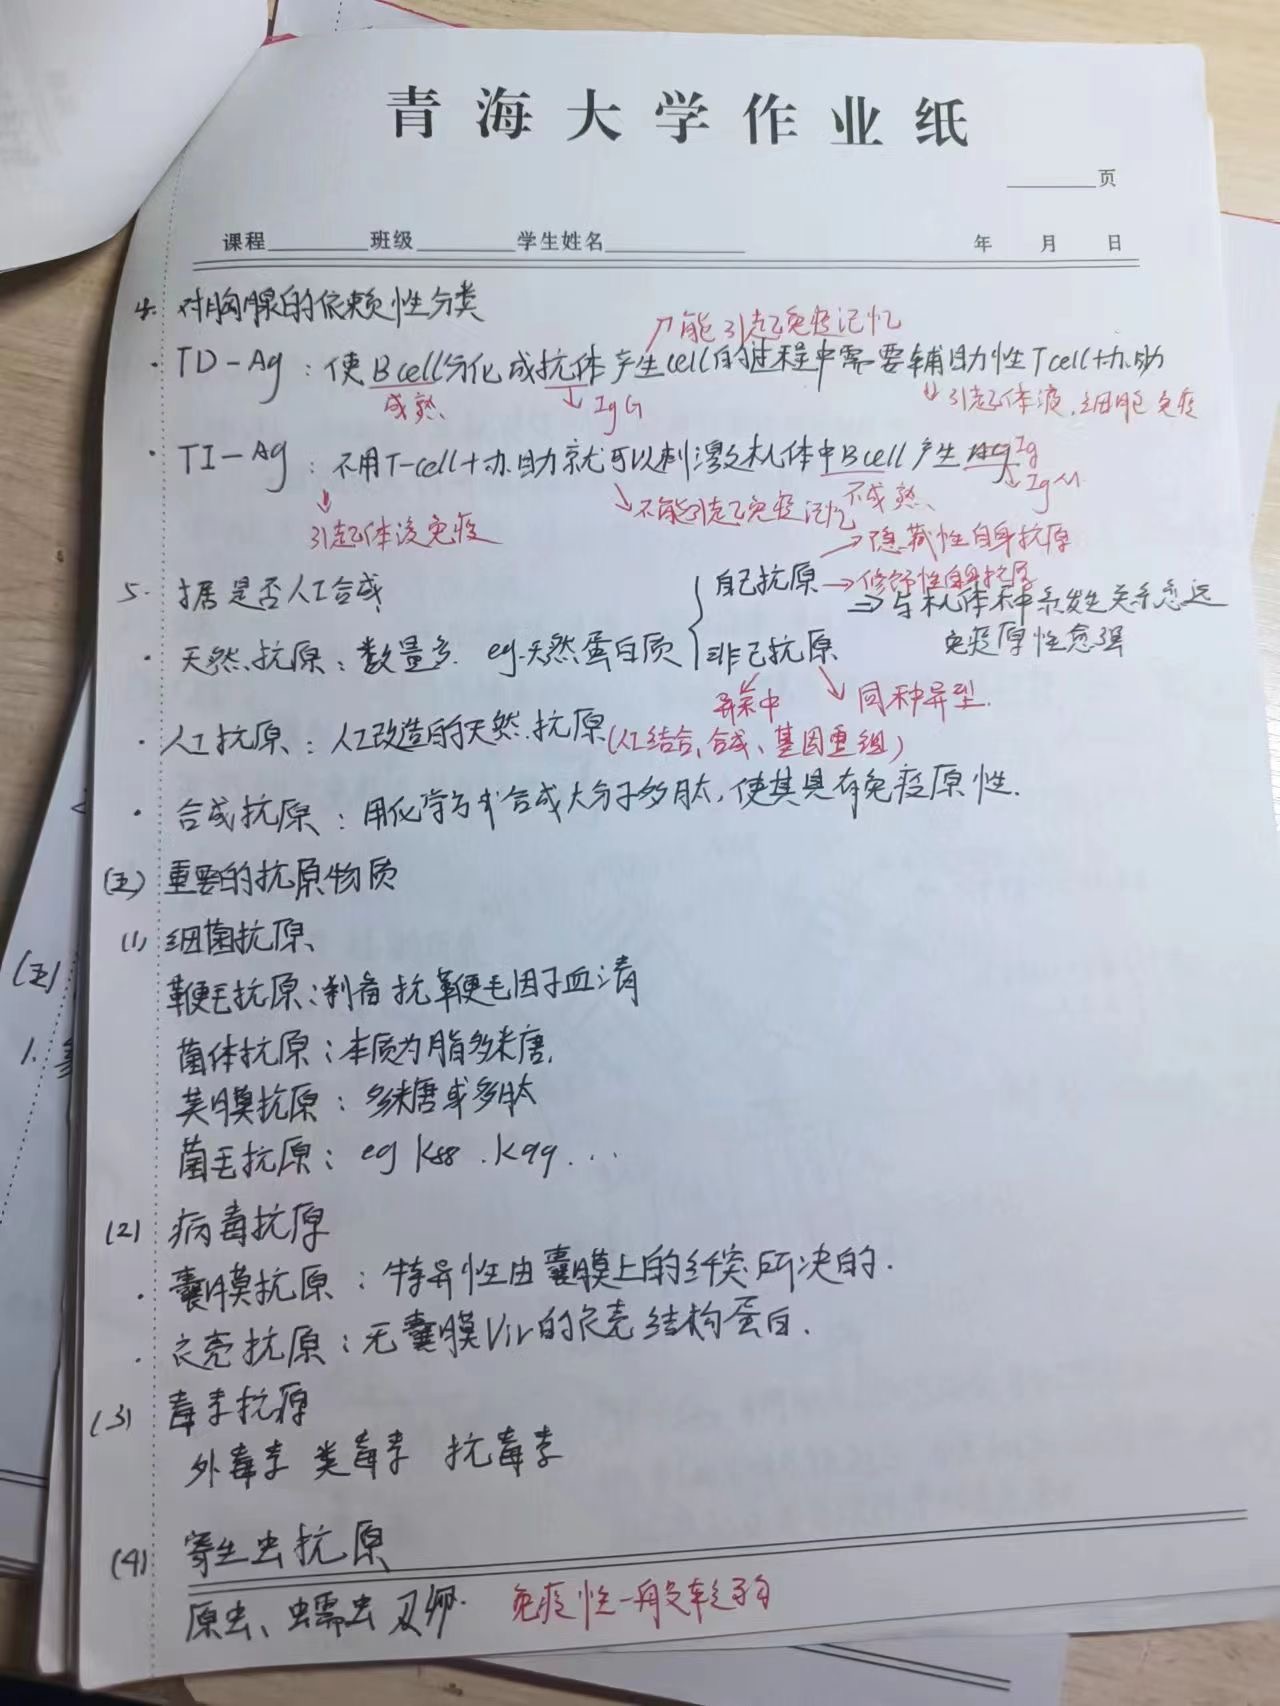 青海大学作业纸
____页
课程____班级____学生姓名____ 年 月 日
4. 对胸腺的依赖性分类
↗能引起免疫记忆
· TD-Ag：使Bcell分化成抗体产生cell的过程中需要辅助性Tcell协助
成熟、 ↓IgG ⇓引起体液.细胞免疫
· TI-Ag：不用T-cell协助就可以刺激机体中Bcell产生Ig
不成熟、 ↓IgM
⇓引起体液免疫 ↘不能引起免疫记忆
→隐蔽性自身抗原
5. 据是否人工合成
自己抗原→修饰性自身抗原
⇒与机体种系发生关系愈远
· 天然抗原：数量多. eg.天然蛋白质 非己抗原 免疫原性愈强
异种 同种异型.
· 人工抗原：人工改造的天然抗原(人工结合、合成、基因重组)
· 合成抗原：用化学方式合成大分子多肽,使其具有免疫原性.
(五) 重要的抗原物质
(1) 细菌抗原、
鞭毛抗原：制备抗鞭毛因子血清
菌体抗原：本质为脂多糖,
荚膜抗原：多糖或多肽
菌毛抗原：eg K88 .K99 ...
(2) 病毒抗原
· 囊膜抗原：特异性由囊膜上的纤突所决的.
· 衣壳抗原：无囊膜Vir的衣壳结构蛋白.
(3) 毒素抗原
外毒素 类毒素 抗毒素
(4) 寄生虫抗原
原虫、蠕虫及卵. 免疫性一般较弱
(五)
1.